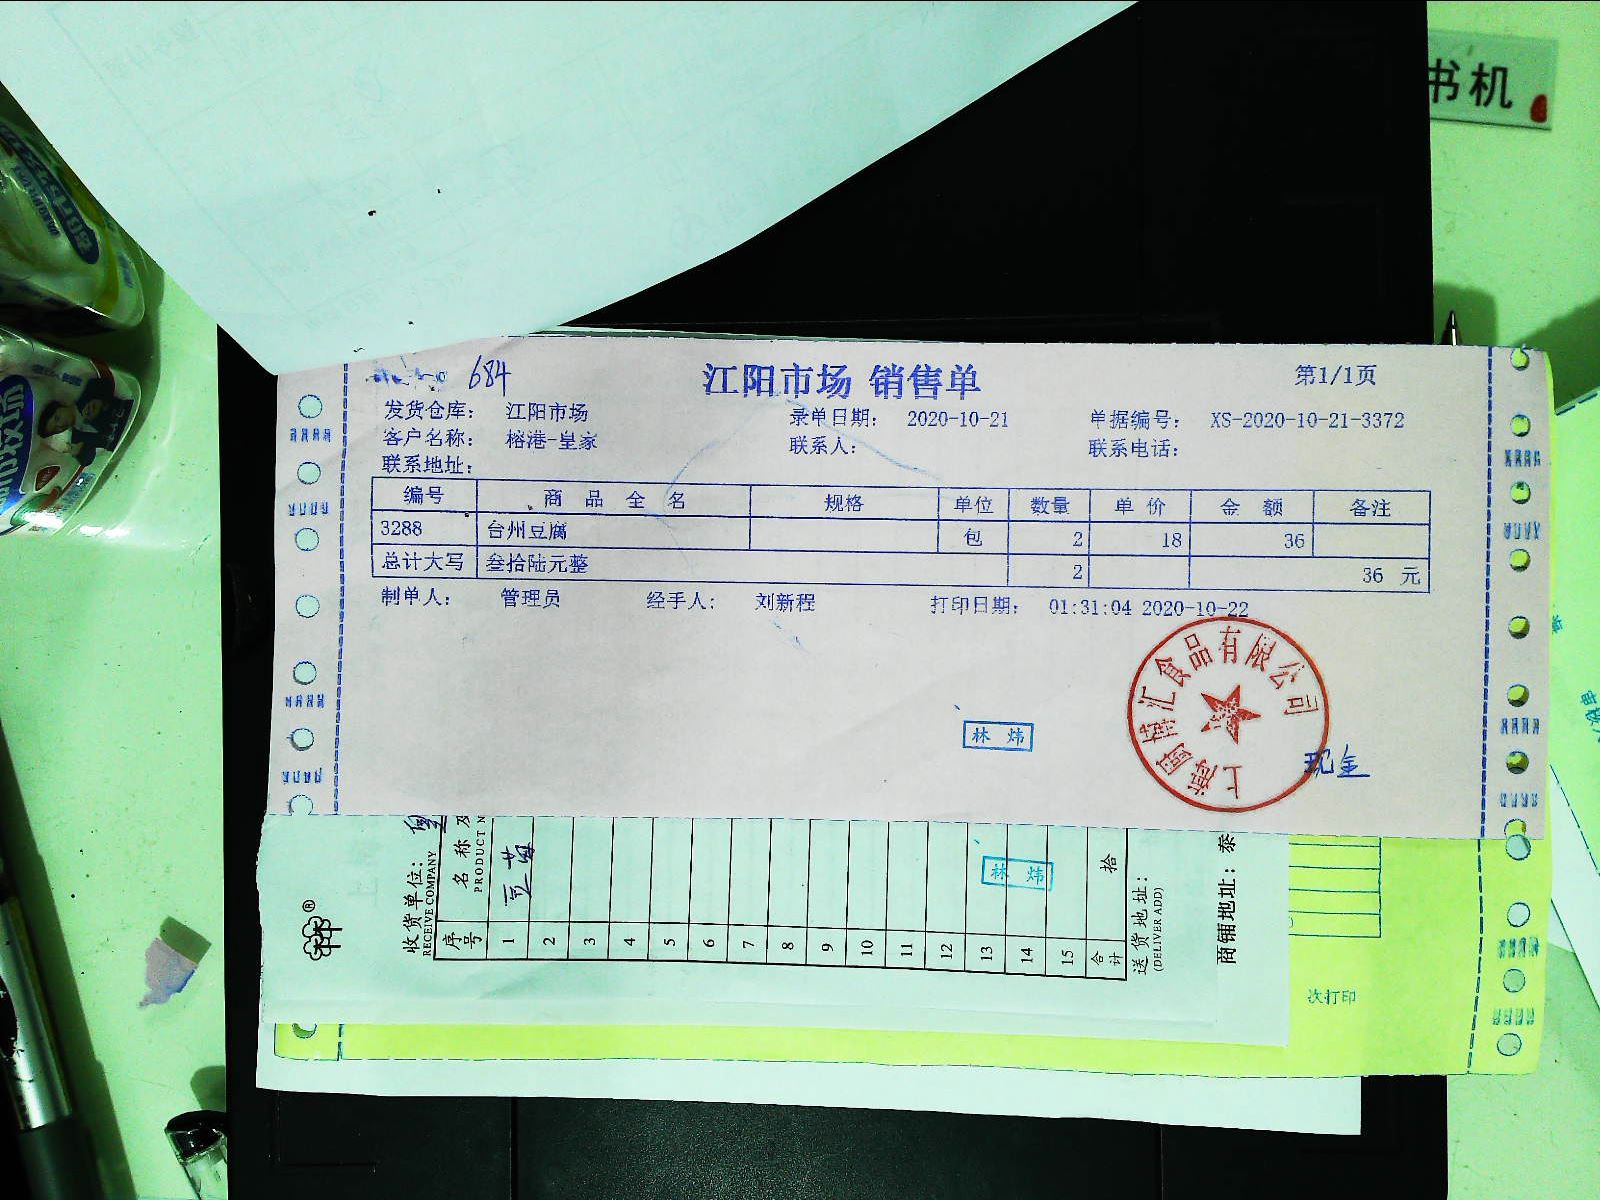 书机
684
江阳市场 销售单
第1/1页
发货仓库： 江阳市场 录单日期： 2020-10-21 单据编号： XS-2020-10-21-3372
客户名称： 榕港-皇家 联系人： 联系电话：
联系地址：
编号 商品全名 规格 单位 数量 单价 金额 备注
3288 台州豆腐 包 2 18 36
总计大写 叁拾陆元整 2 36 元
制单人： 管理员 经手人： 刘新程 打印日期： 01:31:04 2020-10-22
上海闽蒲汇食品有限公司
林炜
现金
收货单位： 皇
RECEIVE COMPANY
序号 名称及
PRODUCT N
1 豆苗
2
3
4
5
6
7
8
9
10
11
12
13
14
15
合计 拾
林炜
送货地址：
(DELIVER ADD)
商铺地址： 泰
次打印